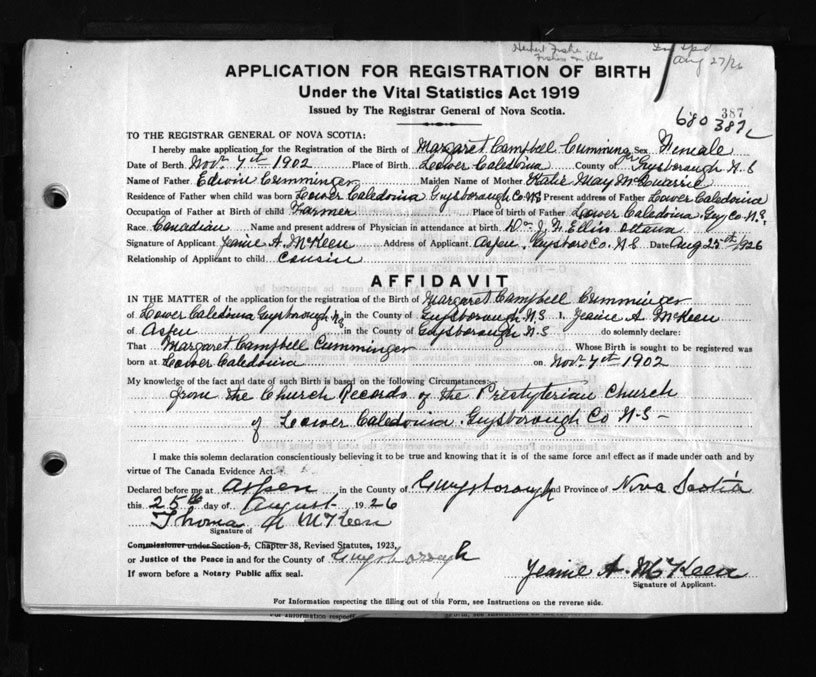 Herbert Fisher
Aug 27/26
APPLICATION FOR REGISTRATION OF BIRTH
Under the Vital Statistics Act 1919
Issued by The Registrar General of Nova Scotia.
387
680 387
TO THE REGISTRAR GENERAL OF NOVA SCOTIA:
I hereby make application for the Registration of the Birth of Margaret Campbell Cumminger Sex Female
Date of Birth Nov. 7th 1902 Place of Birth Lower Caledonia County of Guysborough N.S
Name of Father Edwin Cumminger Maiden Name of Mother Katie May McQuarrie
Residence of Father when child was born Lower Caledonia Guysborough Co. N.S Present address of Father Lower Caledonia
Occupation of Father at Birth of child Farmer Place of birth of Father Lower Caledonia Guy Co N.S.
Race Canadian Name and present address of Physician in attendance at birth Dr J. N. Ellis Ottawa
Signature of Applicant Jeanie A. McKeen Address of Applicant Aspen, Guysboro Co. N.S Date Aug 25th 1926
Relationship of Applicant to child Cousin
AFFIDAVIT
IN THE MATTER of the application for the registration of the Birth of Margaret Campbell Cumminger
of Lower Caledonia Guysborough NS in the County of Guysborough N.S I, Jeanie A McKeen
of Aspen in the County of Guysborough N.S do solemnly declare:
That Margaret Campbell Cumminger Whose Birth is sought to be registered was
born at Lower Caledonia on Nov. 7th 1902
My knowledge of the fact and date of such Birth is based on the following Circumstances:
from the Church Records of the Presbyterian Church
of Lower Caledonia Guysborough Co N.S-
I make this solemn declaration conscientiously believing it to be true and knowing that it is of the same force and effect as if made under oath and by
virtue of The Canada Evidence Act.
Declared before me at Aspen in the County of Guysborough and Province of Nova Scotia
this 25th day of August 1926
Thomas A McKeen
Signature of
Commissioner under Section 5, Chapter 38, Revised Statutes, 1923,
or Justice of the Peace in and for the County of Guysborough
If sworn before a Notary Public affix seal.
Jeanie A. McKeen
Signature of Applicant.
For Information respecting the filling out of this Form, see Instructions on the reverse side.